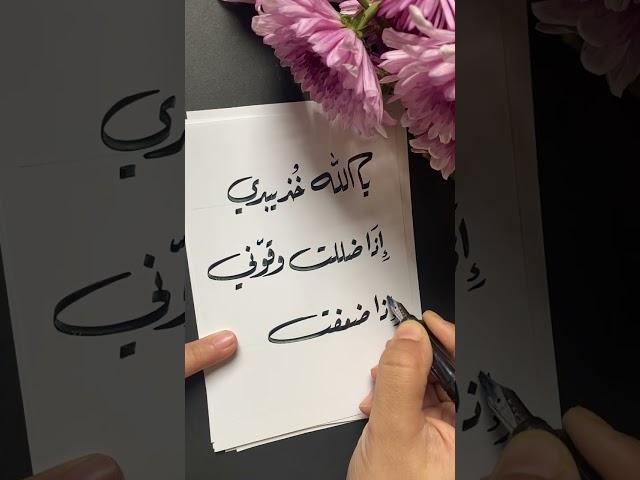 يا الله خُذ بيدي
إِذَا ضللت وقوّني
إِذا ضعفت